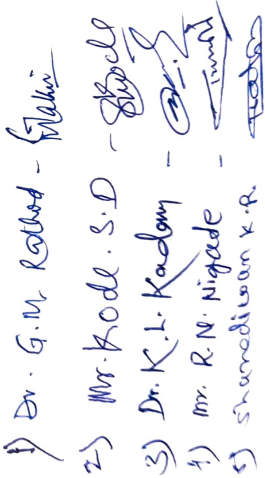 1) Dr. G.M. Rathod -
2) Mr. Kode. S.D -
3) Dr. K.L. Kadam -
4) mr. R.N. Nigade -
5) shanediwan K.R.